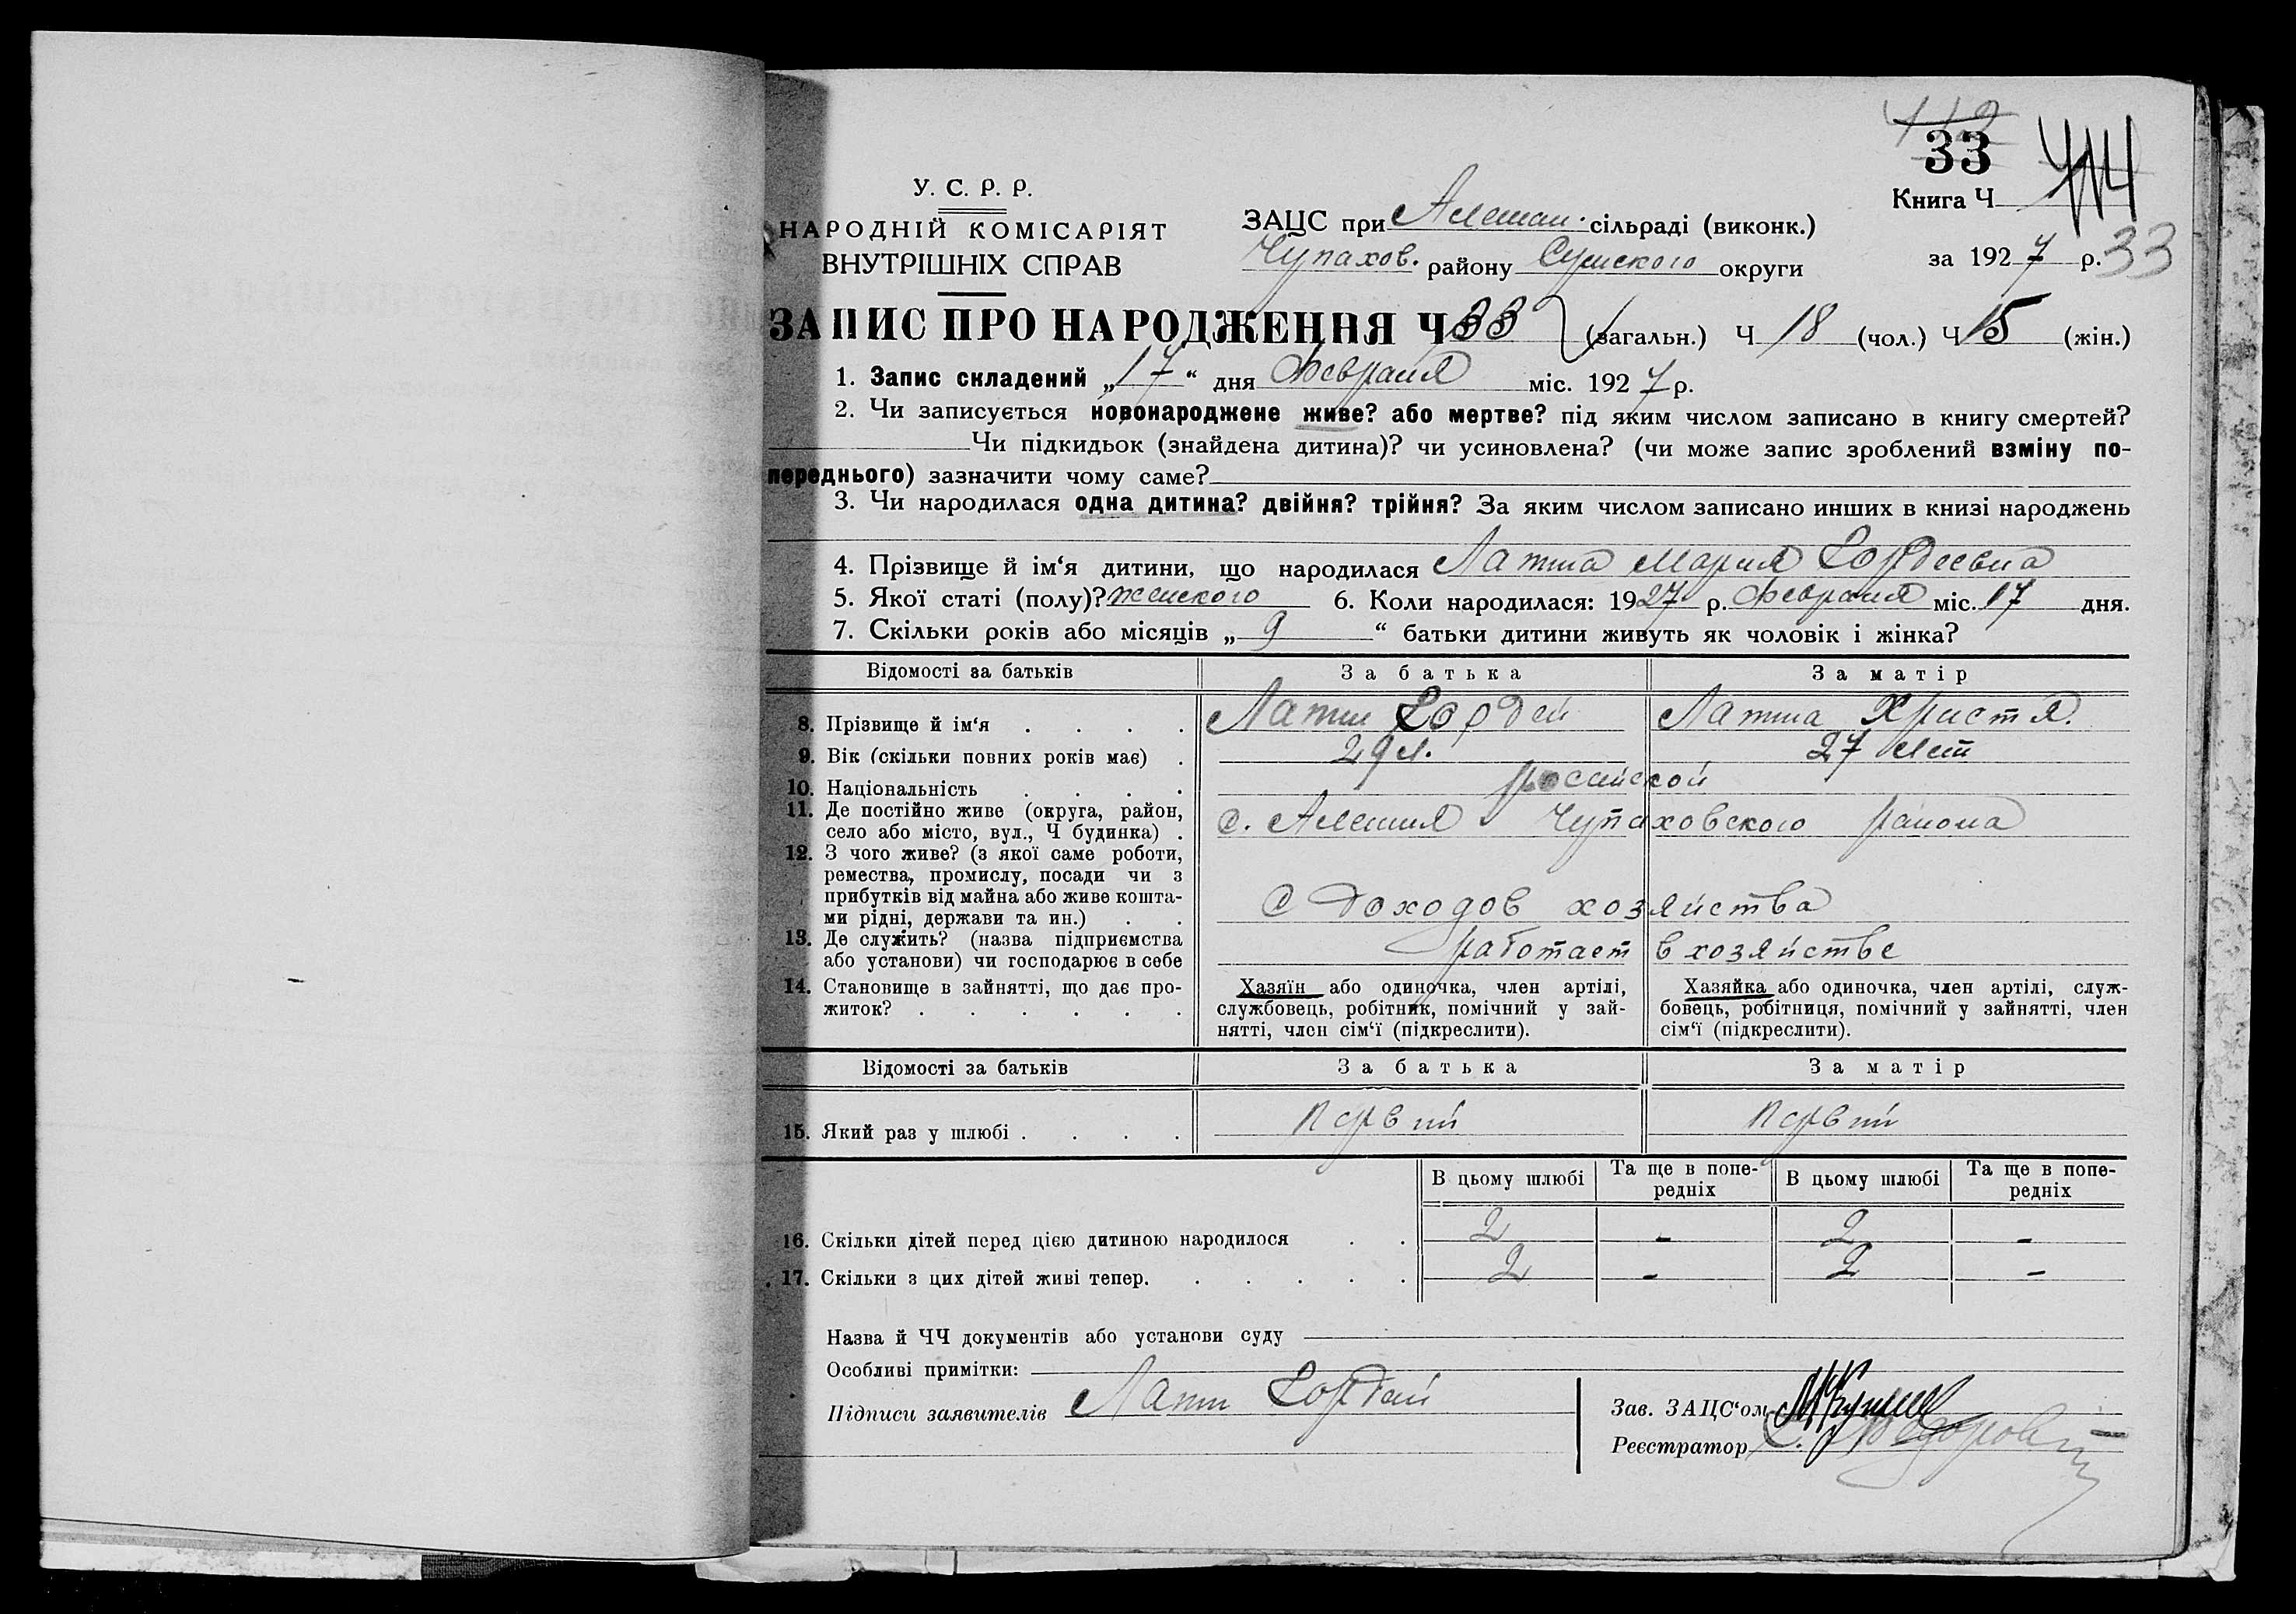 33
Книга Ч 414
У. С. Р. Р.
НАРОДНІЙ КОМІСАРІЯТ
ВНУТРІШНІХ СПРАВ
ЗАЦС при Алешан. сільраді (виконк.)
Чупахов. району Сумского округи
за 1927 р. 33
ЗАПИС ПРО НАРОДЖЕННЯ Ч 33 (загальн.) Ч 18 (чол.) Ч 15 (жін.)
1. Запис складений „17“ дня Февраля міс. 1927 р.
2. Чи записується новонароджене живе? або мертве? під яким числом записано в книгу смертей?
Чи підкидьок (знайдена дитина)? чи усиновлена? (чи може запис зроблений взміну по-
переднього) зазначити чому саме?
3. Чи народилася одна дитина? двійня? трійня? За яким числом записано инших в книзі народжень
4. Прізвище й ім‘я дитини, що народилася Лапша Мария Гордеевна
5. Якої статі (полу)? женского 6. Коли народилася: 1927 р. Февраля міс. 17 дня.
7. Скільки років або місяців „ 9 “ батьки дитини живуть як чоловік і жінка?
Відомості за батьків За батька За матір
8. Прізвище й ім‘я . . . . Лапши Гордей Лапша Христя.
9. Вік (скільки повних років має) . 29 л. 27 лет
10. Національність . . . . російской
11. Де постійно живе (округа, район,
село або місто, вул., Ч будинка) . с. Алешня Чупаховского района
12. З чого живе? (з якої саме роботи,
ремества, промислу, посади чи з
прибутків від майна або живе кошта-
ми рідні, держави та ин.) . . С доходов хозяйства
13. Де служить? (назва підприємства
або установи) чи господарює в себе работает в хозяйстве
14. Становище в зайнятті, що дає про-
житок? . . . . . .
Хазяїн або одиночка, член артілі,
службовець, робітник, помічний у зай-
нятті, член сім‘ї (підкреслити).
Хазяйка або одиночка, член артілі, служ-
бовець, робітниця, помічний у зайнятті, член
сім‘ї (підкреслити).
Відомості за батьків За батька За матір
15. Який раз у шлюбі . . . . первий первий
В цьому шлюбі Та ще в попе-
редніх В цьому шлюбі Та ще в попе-
редніх
16. Скільки дітей перед цією дитиною народилося . . 2 - 2 -
17. Скільки з цих дітей живі тепер. . . . . . 2 - 2 -
Назва й ЧЧ документів або установи суду
Особливі примітки:
Підписи заявителів Лапш Гордей
Зав. ЗАЦС‘ом
Реєстратор